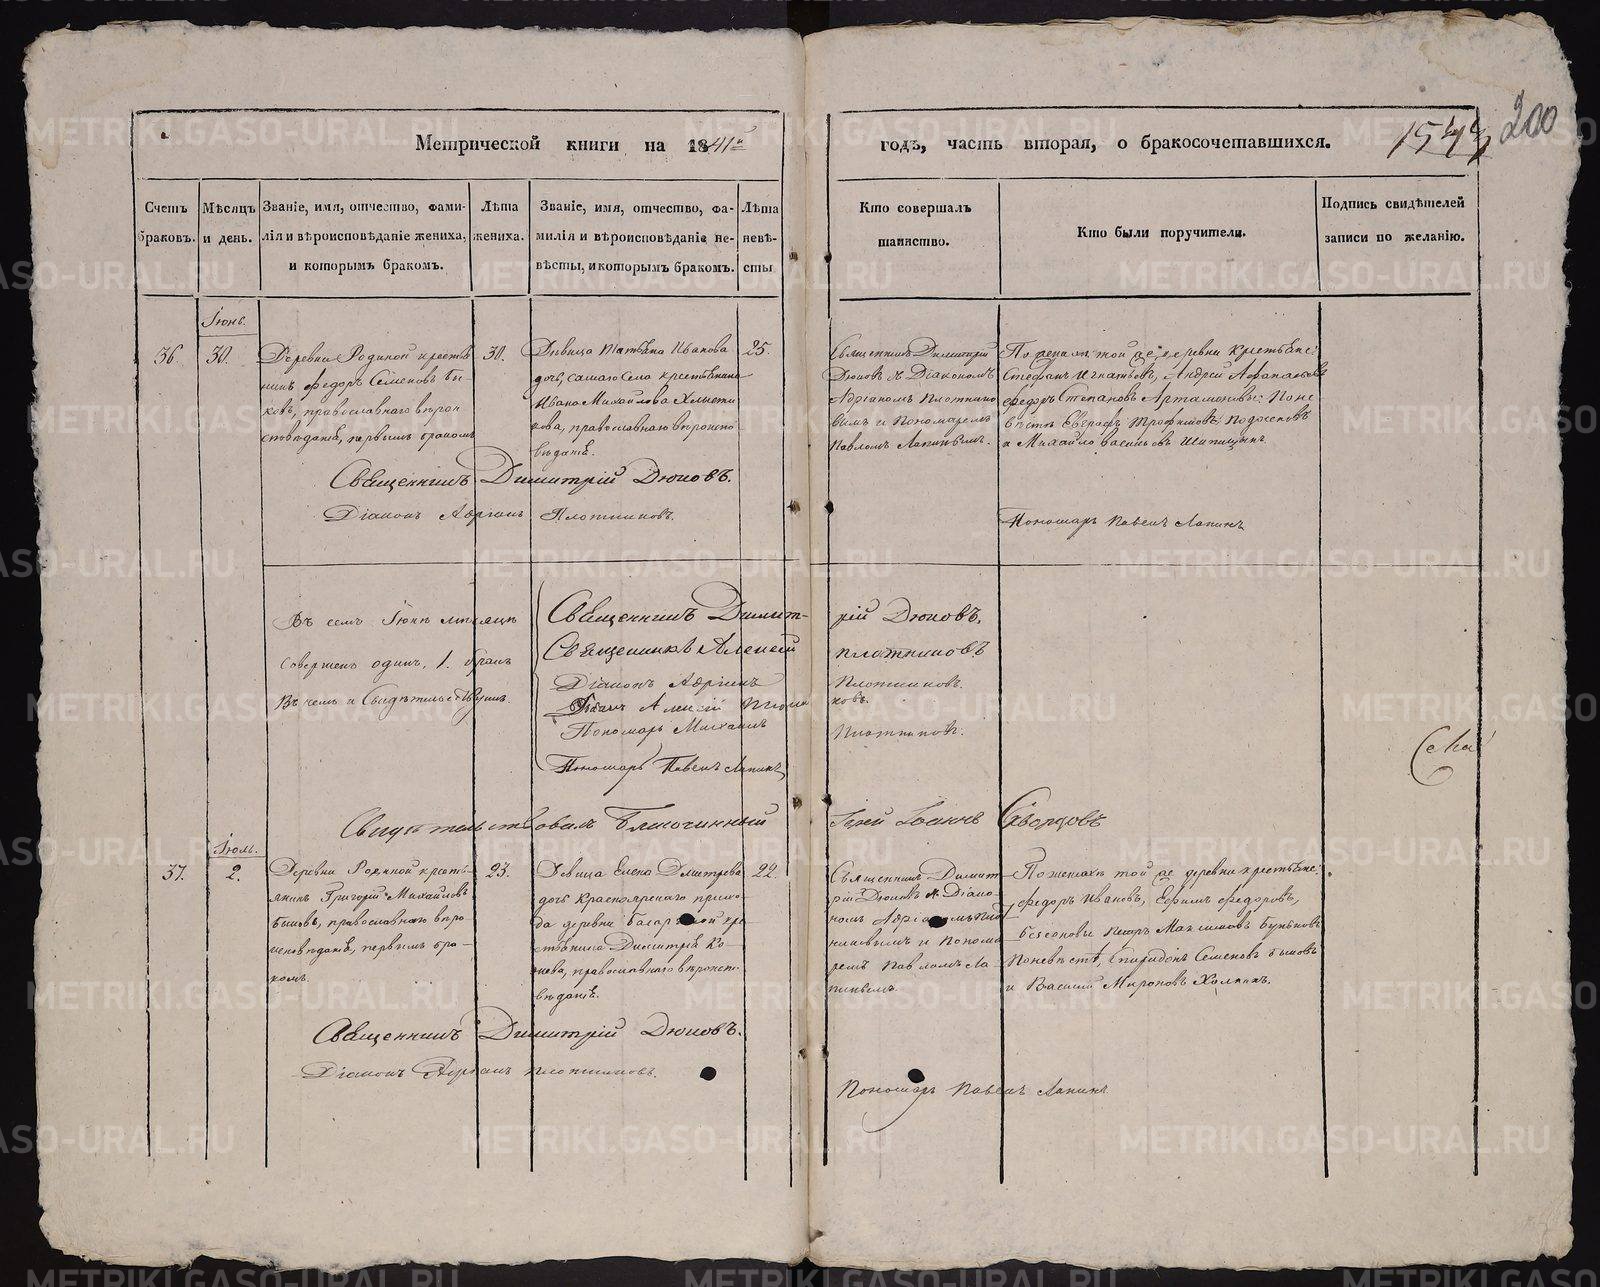 Метрической книги на 1841й
годъ, часть вторая, о бракосочетавшихся.
200
Счетъ браковъ.
Мѣсяцъ и день.
Званіе, имя, отчество, фами-
лія и вѣроисповѣданіе жениха,
и которымъ бракомъ.
Лѣта
жениха.
Званіе, имя, отчество, фа-
милія и вѣроисповѣданіе не-
вѣсты, и которымъ бракомъ.
Лѣта
невѣ-
сты
Кто совершалъ
таинство.
Кто были поручители.
Подпись свидѣтелей
записи по желанію.
Іюнь.
36.
30.
Деревни Родиной крестья-
нинъ Федоръ Семеновъ Бы-
ковъ, православнаго вѣроис-
повѣданія, первымъ бракомъ
30.
Дѣвица Татьяна Иванова
дочь, самаго села крестьянина
Ивана Михайлова
православнаго вѣроиспо-
вѣданія.
25.
Священникъ Димитрій
Дюковъ съ Діакономъ
Адріаномъ Плотнико-
вымъ и Пономаремъ
Павломъ Лапинымъ.
По женихѣ той же деревни крестьяне:
Стефанъ Игнатьевъ, Андрей Афанасьевъ
Федоръ Степановъ Артамоновы; По не-
вѣстѣ Трофимовъ
а Михайло Васильевъ Шипицынъ
Священникъ Димитрій Дюковъ.
Діаконъ Адріанъ Плотниковъ.
Пономарь Павелъ Лапинъ
Въ семъ Іюнѣ мѣсяцѣ
совершенъ одинъ, 1. бракъ
Въ чемъ и Свидѣтельствуемъ.
Священникъ Димит-
рій Дюковъ.
Священникъ Алексій
Плотниковъ
Діаконъ Адріанъ
Плотниковъ.
Алексій Плотни
ковъ.
Пономарь Михаилъ
Плотниковъ.
Пономарь Павелъ Лапинъ
Свидѣтельствовалъ Благочинный
Іерей Іоаннъ
Іюль.
37.
2.
Деревни Родиной кресть-
янинъ Григорій Михайловъ
Быковъ, православнаго вѣро-
исповѣданія, первымъ бра-
комъ.
23.
Дѣвица Елена Дмитрева
дочь Красноярскаго прихо-
да деревни кре-
стьянина Димитрія Ко-
православнаго вѣроиспо-
вѣданія.
22
Священникъ Димит-
рій Дюковъ съ Діако-
номъ Адріаномъ Плот-
никовымъ и Понома-
ремъ Павломъ Ла-
пинымъ
По женихѣ той же деревни крестьяне:
Федоръ Ивановъ, Ефимъ Федоровъ,
Петръ Максимовъ
По невѣстѣ, Спиридонъ Семеновъ Быковъ
и Василій Мироновъ
Священникъ Димитрій Дюковъ.
Діаконъ Адріанъ Плотниковъ.
Пономарь Павелъ Лапинъ
METRIKI.GASO-URAL.RU